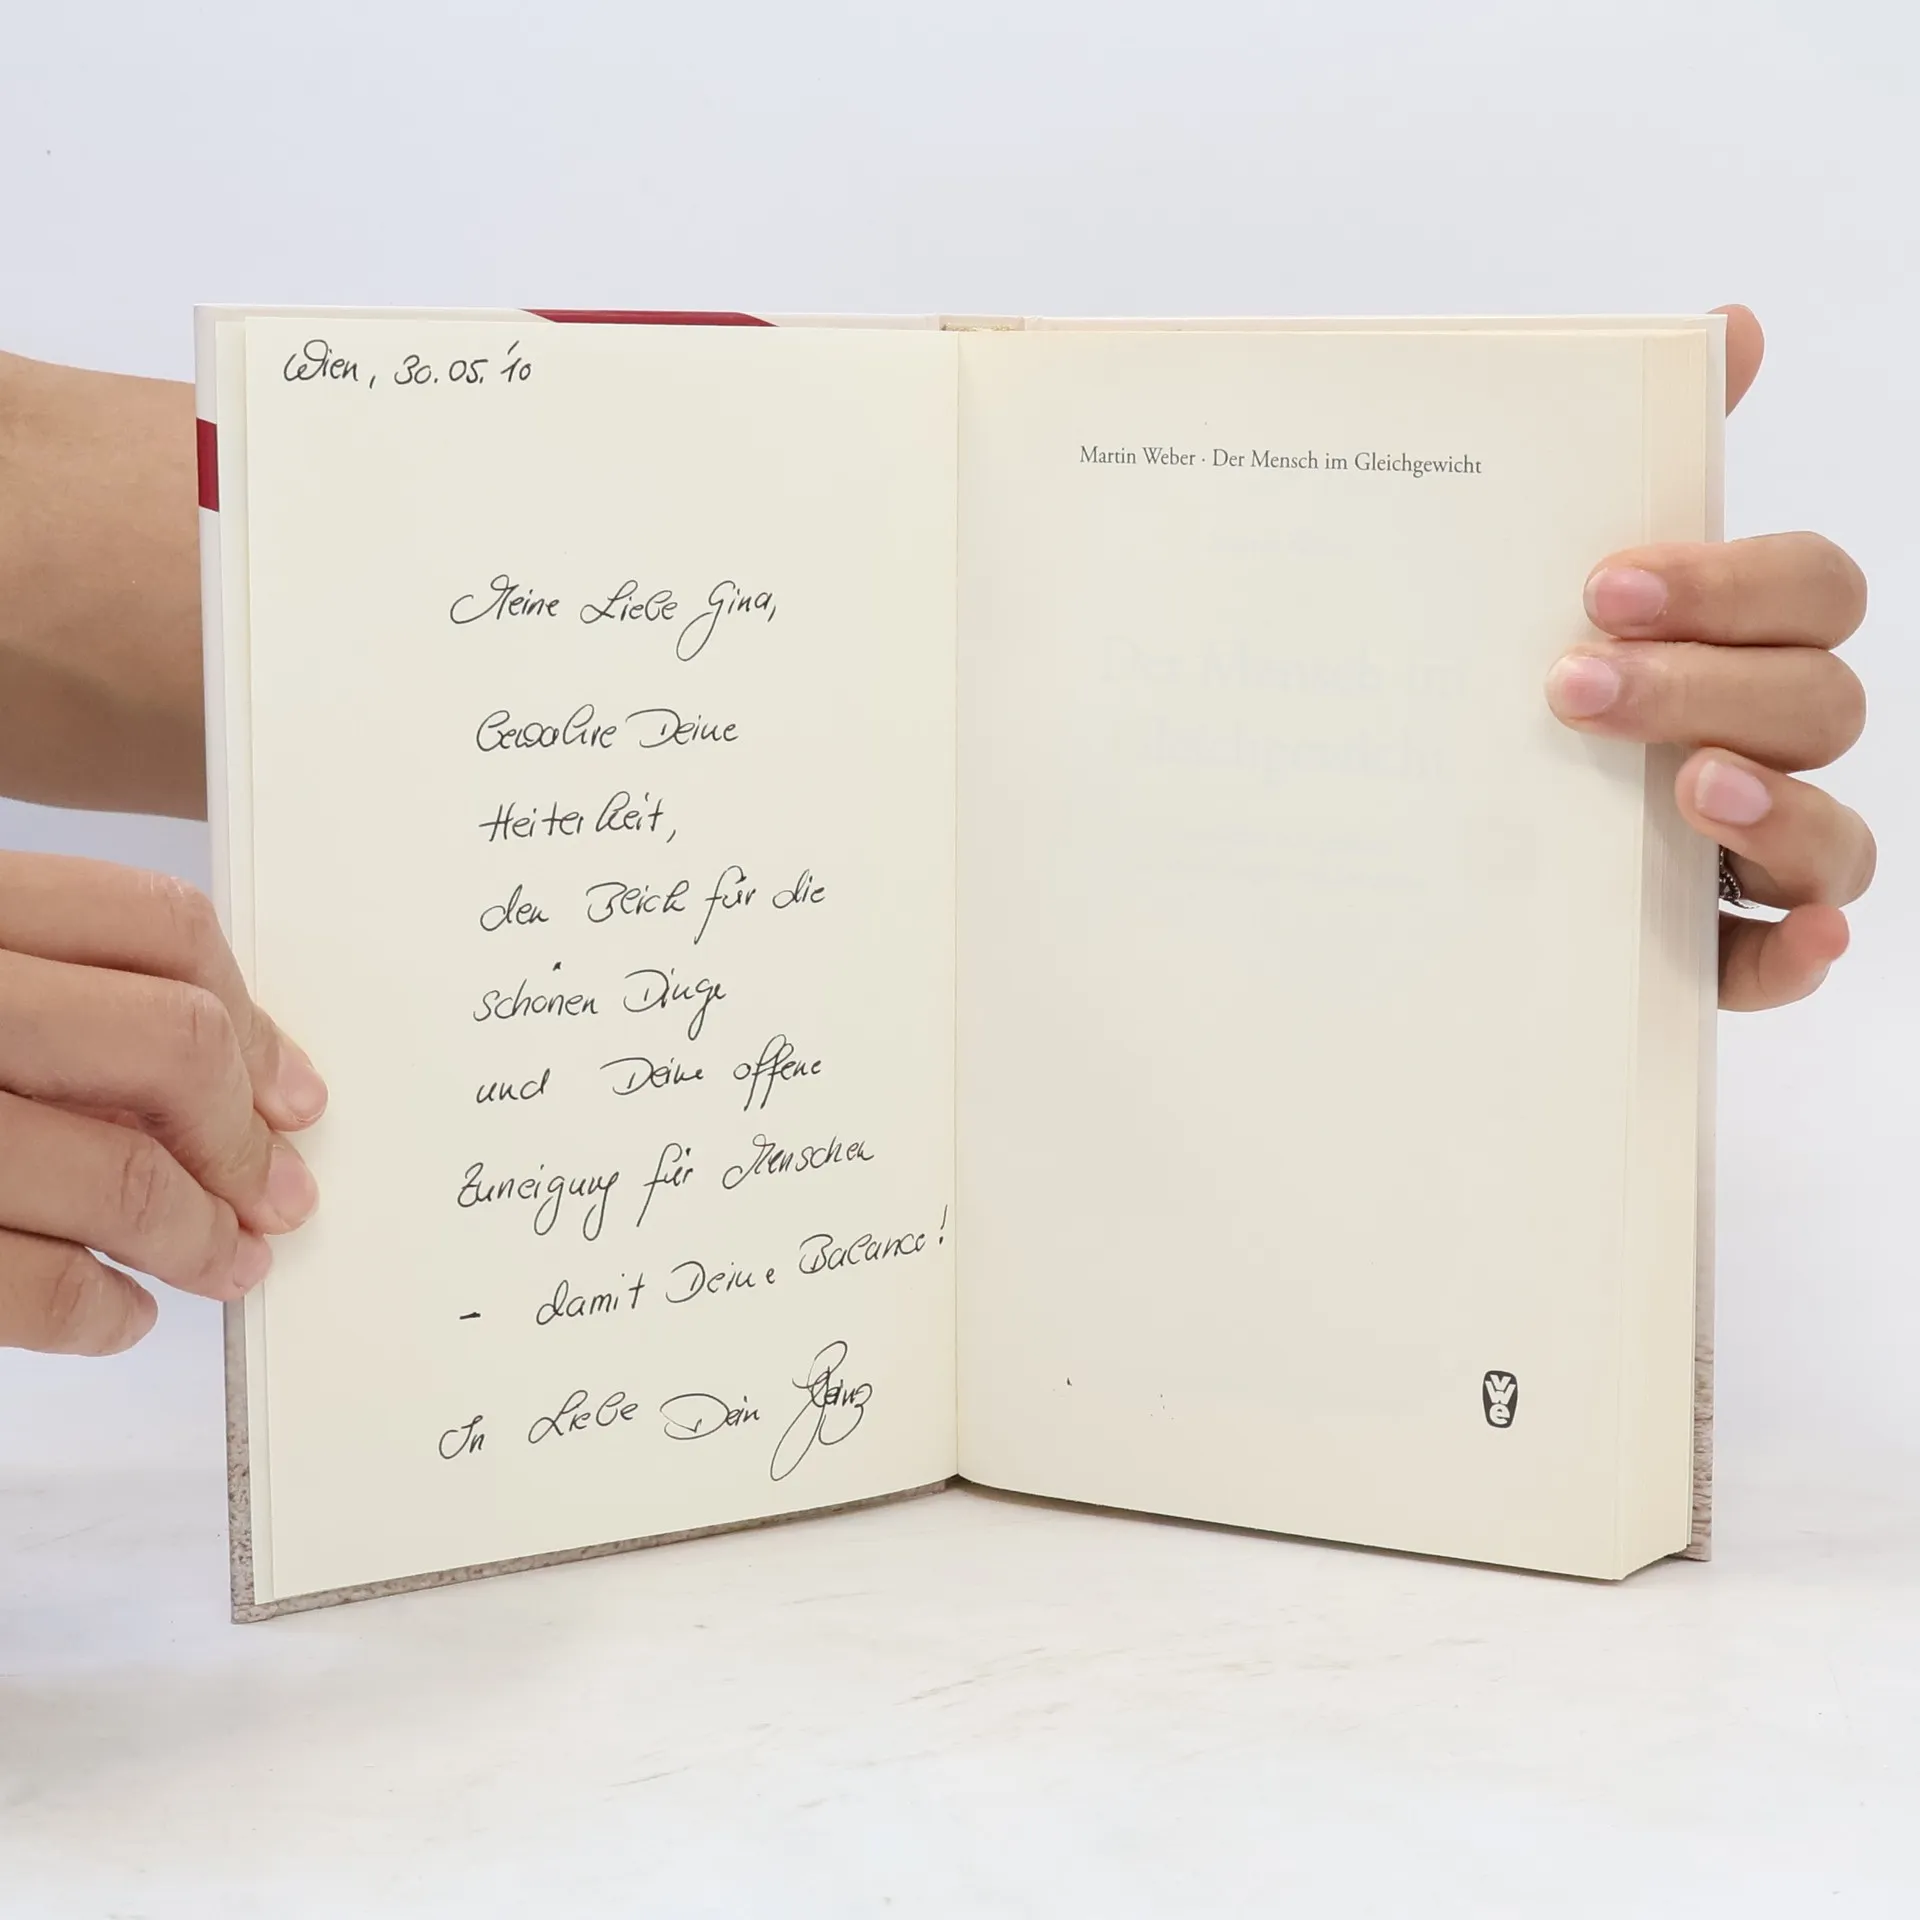 Wien, 30.05.'10
Meine Liebe Gina,
bewahre Deine
Heiterkeit,
den Blick für die
schönen Dinge
und Deine offene
Zuneigung für Menschen
- damit Deine Balance!
In Liebe Dein Heinz
Martin Weber · Der Mensch im Gleichgewicht
Der Mensch im
Gleichgewicht
vwe